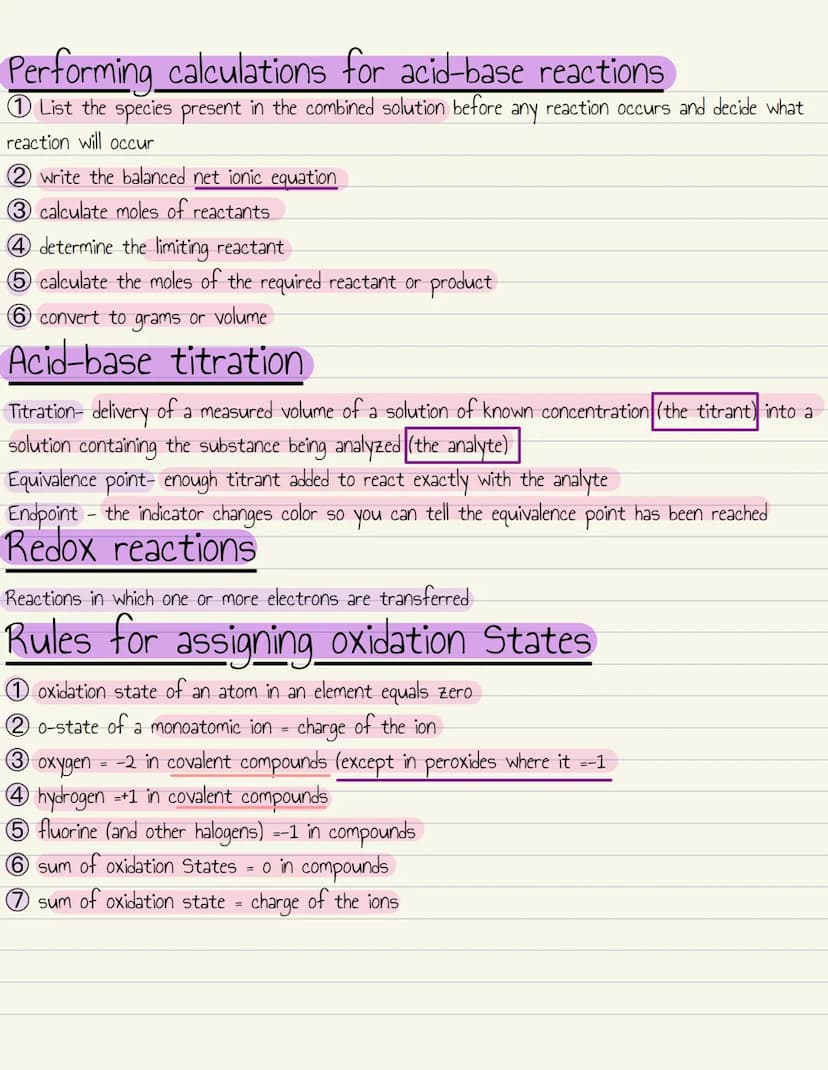 Performing calculations for acid-base reactions
① List the species present in the combined solution before any reaction occurs and decide what
reaction will occur
② write the balanced net ionic equation
③ calculate moles of reactants
④ determine the limiting reactant
⑤ calculate the moles of the required reactant or product
⑥ convert to grams or volume
Acid-base titration
Titration- delivery of a measured volume of a solution of known concentration (the titrant) into a
solution containing the substance being analyzed (the analyte)
Equivalence point- enough titrant added to react exactly with the analyte
Endpoint - the indicator changes color so you can tell the equivalence point has been reached
Redox reactions
Reactions in which one or more electrons are transferred
Rules for assigning oxidation States
① oxidation state of an atom in an element equals zero
② o-state of a monoatomic ion = charge of the ion
③ oxygen = -2 in covalent compounds (except in peroxides where it =-1
④ hydrogen =+1 in covalent compounds
⑤ fluorine (and other halogens) =-1 in compounds
⑥ sum of oxidation States = 0 in compounds
⑦ sum of oxidation state = charge of the ions